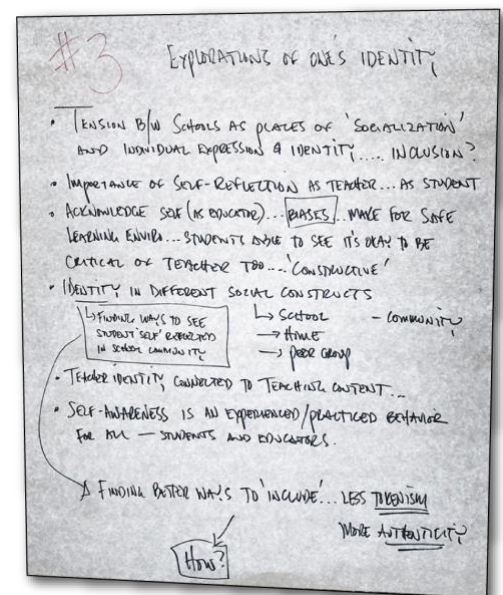 #3
EXPLORATIONS OF ONE'S IDENTITY
• TENSION B/W SCHOOLS AS PLACES OF 'SOCIALIZATION'
AND INDIVIDUAL EXPRESSION & IDENTITY.... INCLUSION?
• IMPORTANCE OF SELF-REFLECTION AS TEACHER... AS STUDENT
• ACKNOWLEDGE SELF (AS EDUCATOR)... BIASES... MAKE FOR SAFE
LEARNING ENVIRO... STUDENTS ABLE TO SEE IT'S OKAY TO BE
CRITICAL OF TEACHER TOO... 'CONSTRUCTIVE'
• IDENTITY IN DIFFERENT SOCIAL CONSTRUCTS
↳ FINDING WAYS TO SEE
STUDENT 'SELF' REFLECTED
IN SCHOOL COMMUNITY
↳ SCHOOL
→ HOME
→ PEER GROUP
- COMMUNITY
• TEACHER IDENTITY, CONNECTED TO TEACHING CONTENT...
• SELF-AWARENESS IS AN EXPERIENCED/PRACTICED BEHAVIOR
FOR ALL — STUDENTS AND EDUCATORS.
FINDING BETTER WAYS TO 'INCLUDE'... LESS TOKENISM
MORE AUTHENTICITY
HOW?